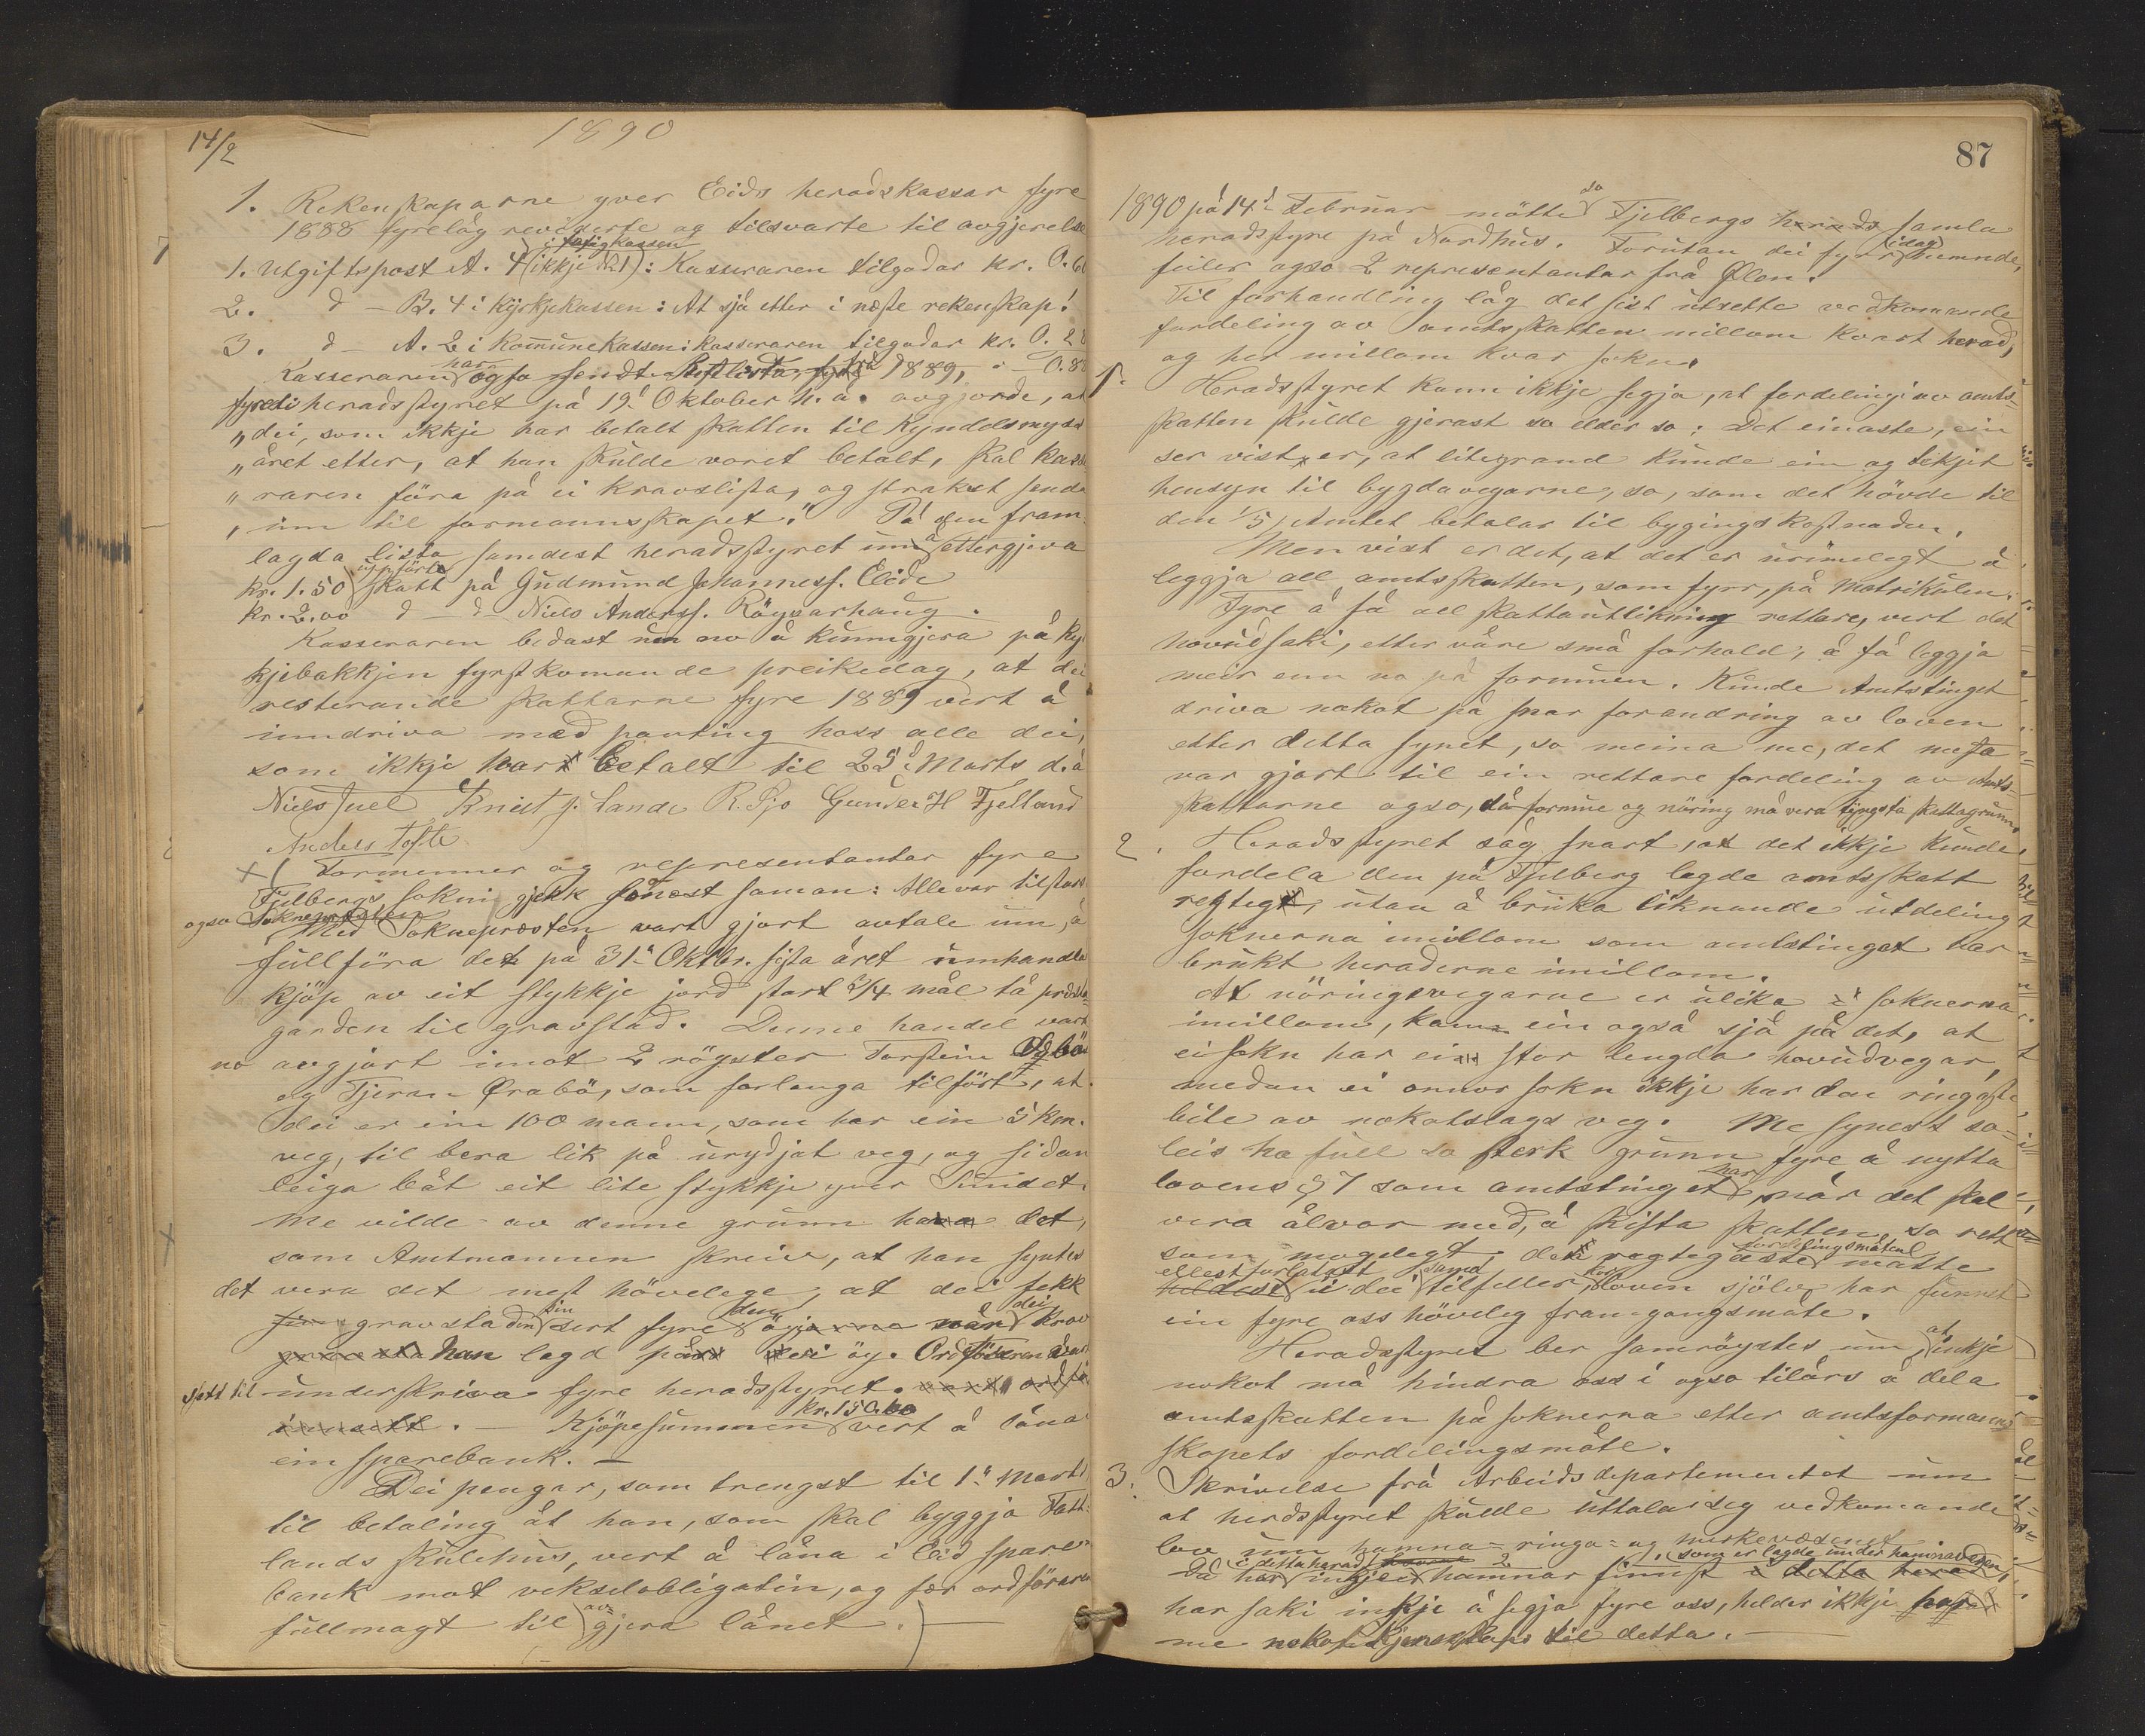 14/2
1890
1. Rekenskaparne yver Eids heradskassar fyre
1888 fyrelåg reviderte og tilsvarte til avgjerelse
i fatigkassen
1. Utgiftspost A. 4 (ikkje № 1): Kasseraren tilgodar kr. 0.60
2. d - B. 4 i Kyrkjekassen: At sjå etter i næste rekenskap!
3. d - A. 2 i Kommunekassen: Kasseraren tilgodar kr. 0.28
Kasseraren har ogso sendt Restlista frå 1889, - 0.88
fyredi heradsstyret på 19de Oktober n. å. avgjorde, at
"dei, som ikkje har betalt skatten til Kyndelsmyss
"året etter, at han skulde voret betalt, skal kasse
"raren föra på ei kravslista, og strakst senda
"inn til formannskapet." På den fram-
lagda lista samdest heradsstyret um å ettergjeva
uppförte
kr. 1.50 skatt på Gudmund Johanness. Eide
kr. 2.00 d - d - Niels Anderss. Röysarhaug.
Kasseraren bedast um av å kunngjera på Kyr
kjebakkjen fyrstkomande preikedag, at dei
resterande skattarne fyre 1889 vert å
inndriva med panting hoss alle dei,
som ikkje har betalt til 25de Marts d. å
Niels Juel Knut J. Lande R. Sjo Gunder H Fjelland
Anders Tofte
Formenner og representantar fyre
Fjelbergs sokn gjekk sönest saman: Alle var tilstads
ogso Soknepresten
Med Soknepresten vart gjort avtale um, å
fullföra det på 31te Oktbr. sista året umhandla
kjöp av eit stykkje jord, stort 3/4 mål tå prests
garden til gravstad. Denne handel vart
no avgjort imot 2 röyster Torstein
og Tjeran Ørabö, som forlanga tilfört, at
dei er ein 100 mann, som har ein 5 km.
veg, til bera lik på urydjat veg, og sidan
leiga båt eit lite stykkje yver Sundet.
Me vilde av denne grunn hava det,
som Amtmannen skreiv, at han syntes
det vera det mest hövelege, at dei fekk
gravstaden sin sert fyre den når dei krav
han lagd på ei öy. Ordföraren vart
sett til underskriva fyre heradsstyret.
Kjöpesummen kr. 150.00 vert å låna
ein sparebank. -
Dei pengar, som trengst til 1te Marts
til betaling åt han, som skal byggja Tatt-
lands skulehus, vert å låna i Eid spare-
bank mot vekselobligation, og fær ordföraren
fullmagt til av-gjera lånet.
87
1890 på 14de Februar mötte so Fjelbergs samla
heradsstyre på Nordhus. Forutan dei fyrr (idag) numnde,
feiler ogso 2 representantar frå Ølen.
Til forhandling låg det sist utsette vedkomande
fordeling av amtsskatten millom kvart herad,
og her millom kvar sokn.
1. Heradsstyret kann ikkje segja, at fordelingi av amts-
skatten skulde gjerast so elder so; Det einaste, ein
ser vist, er, at litegrand kunde ein og tekjet
hensyn til bygdavegarne, so, som det hövde til
den 1/5, Amtet betalar til bygingskostnaden.
Men vist er det, at det er urimelegt å
leggja all amtsskatten, som fyrr, på Matrikulen.
Fyre å få all skattautlikning rettare, vert det
hovudsaki, etter våre små forhold, å få leggja
meir enn no på formuen. Kunde Amtstinget
driva nokot på snar forandring av loven
etter detta synet, so meina me, det mesta
var gjort til ein rettare fordeling av Amts-
skattarne ogso, då formue og näring må vera tyngsta skattagrunn.
2. Heradsstyret såg snart, at det ikkje kunde
fordela den på Fjelberg lagde amtsskatt
regtegt, utan å bruka liknande utdeling
soknerna imillom som amtstinget har
brukt heraderne imillom.
At näringsvegarne er ulika i soknerna
imillom, kann ein også sjå på det, at
ei sokn har ei stor lengda hovudvegar,
medan ei onnor sokn ikkje har den ringaste
bite av nokotslags veg. Me synest so-
leis ha full so sterk grunn fyre å nytta
lovens § 7 som amtstinget har, når det skal
vera ålvor med, å skifta skatten so rett
som mogelegt; den regtegaste fordelingsmåten måtte
ellest forlatast i dei tilfeller, kor loven sjölv har funnet
ein fyre oss höveleg framgangsmåte.
Heradsstyret ber samröystes um, at inkje
nokot må hindra oss i ogso tilårs å dela
amtsskatten på soknerna etter amtsformann
skapets fordelingsmåte.
3. Skrivelse frå Arbeidsdepartementet um
at herdsstyret skulde uttala seg vedkomande
lov um hamna- ringa- og merkevæsenet
Då i detta herad inkje hamnar finnst, som er lagde under hamnavesen,
har saki inkje å segja fyre oss, helder ikkje
me nokot Kjennskap til detta. -